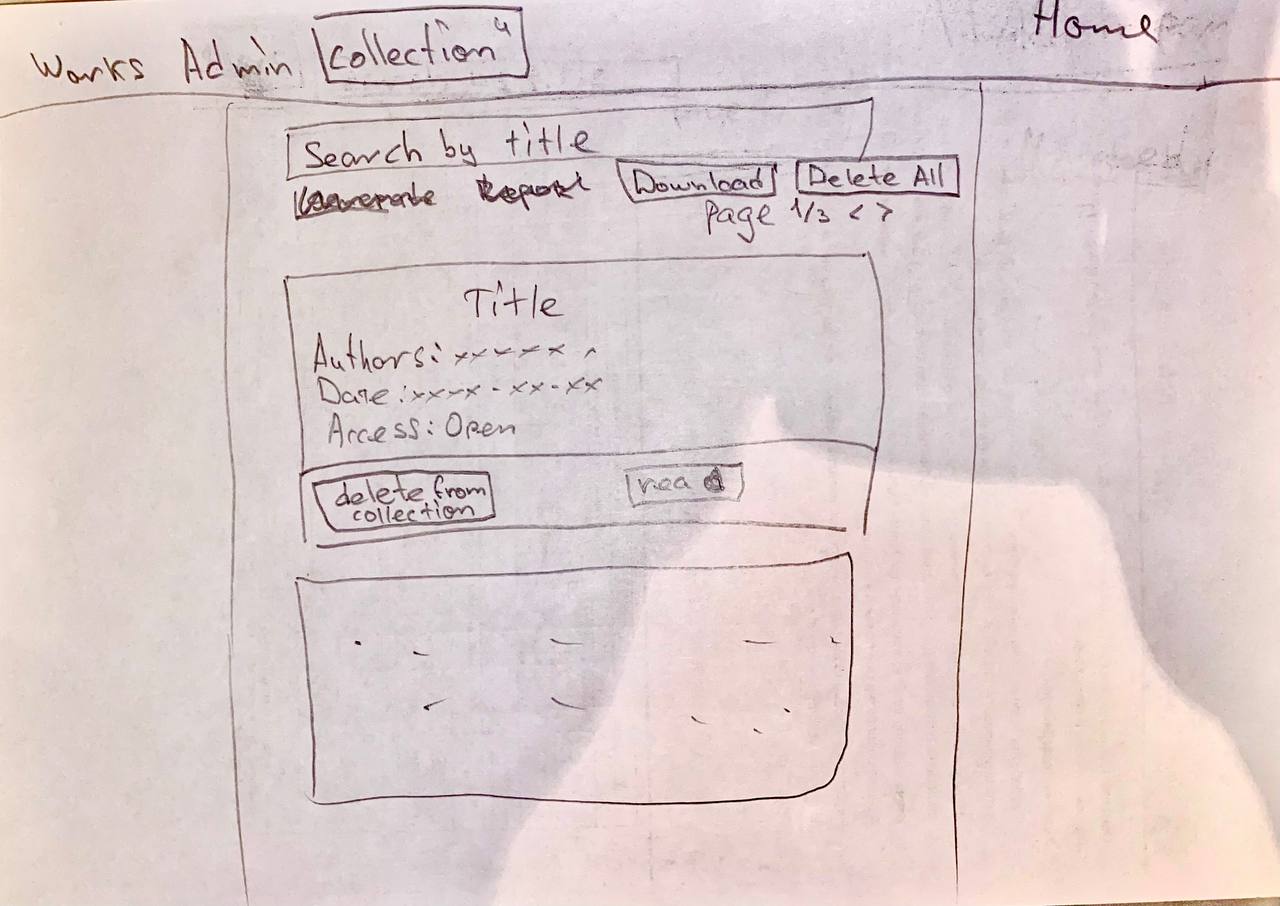 Works Admin Collection 4 Home
Search by title
Download Delete All
Page 1/3 < >
Title
Authors: xxxxx x
Date: xxxx-xx-xx
Access: Open
delete from
collection
read